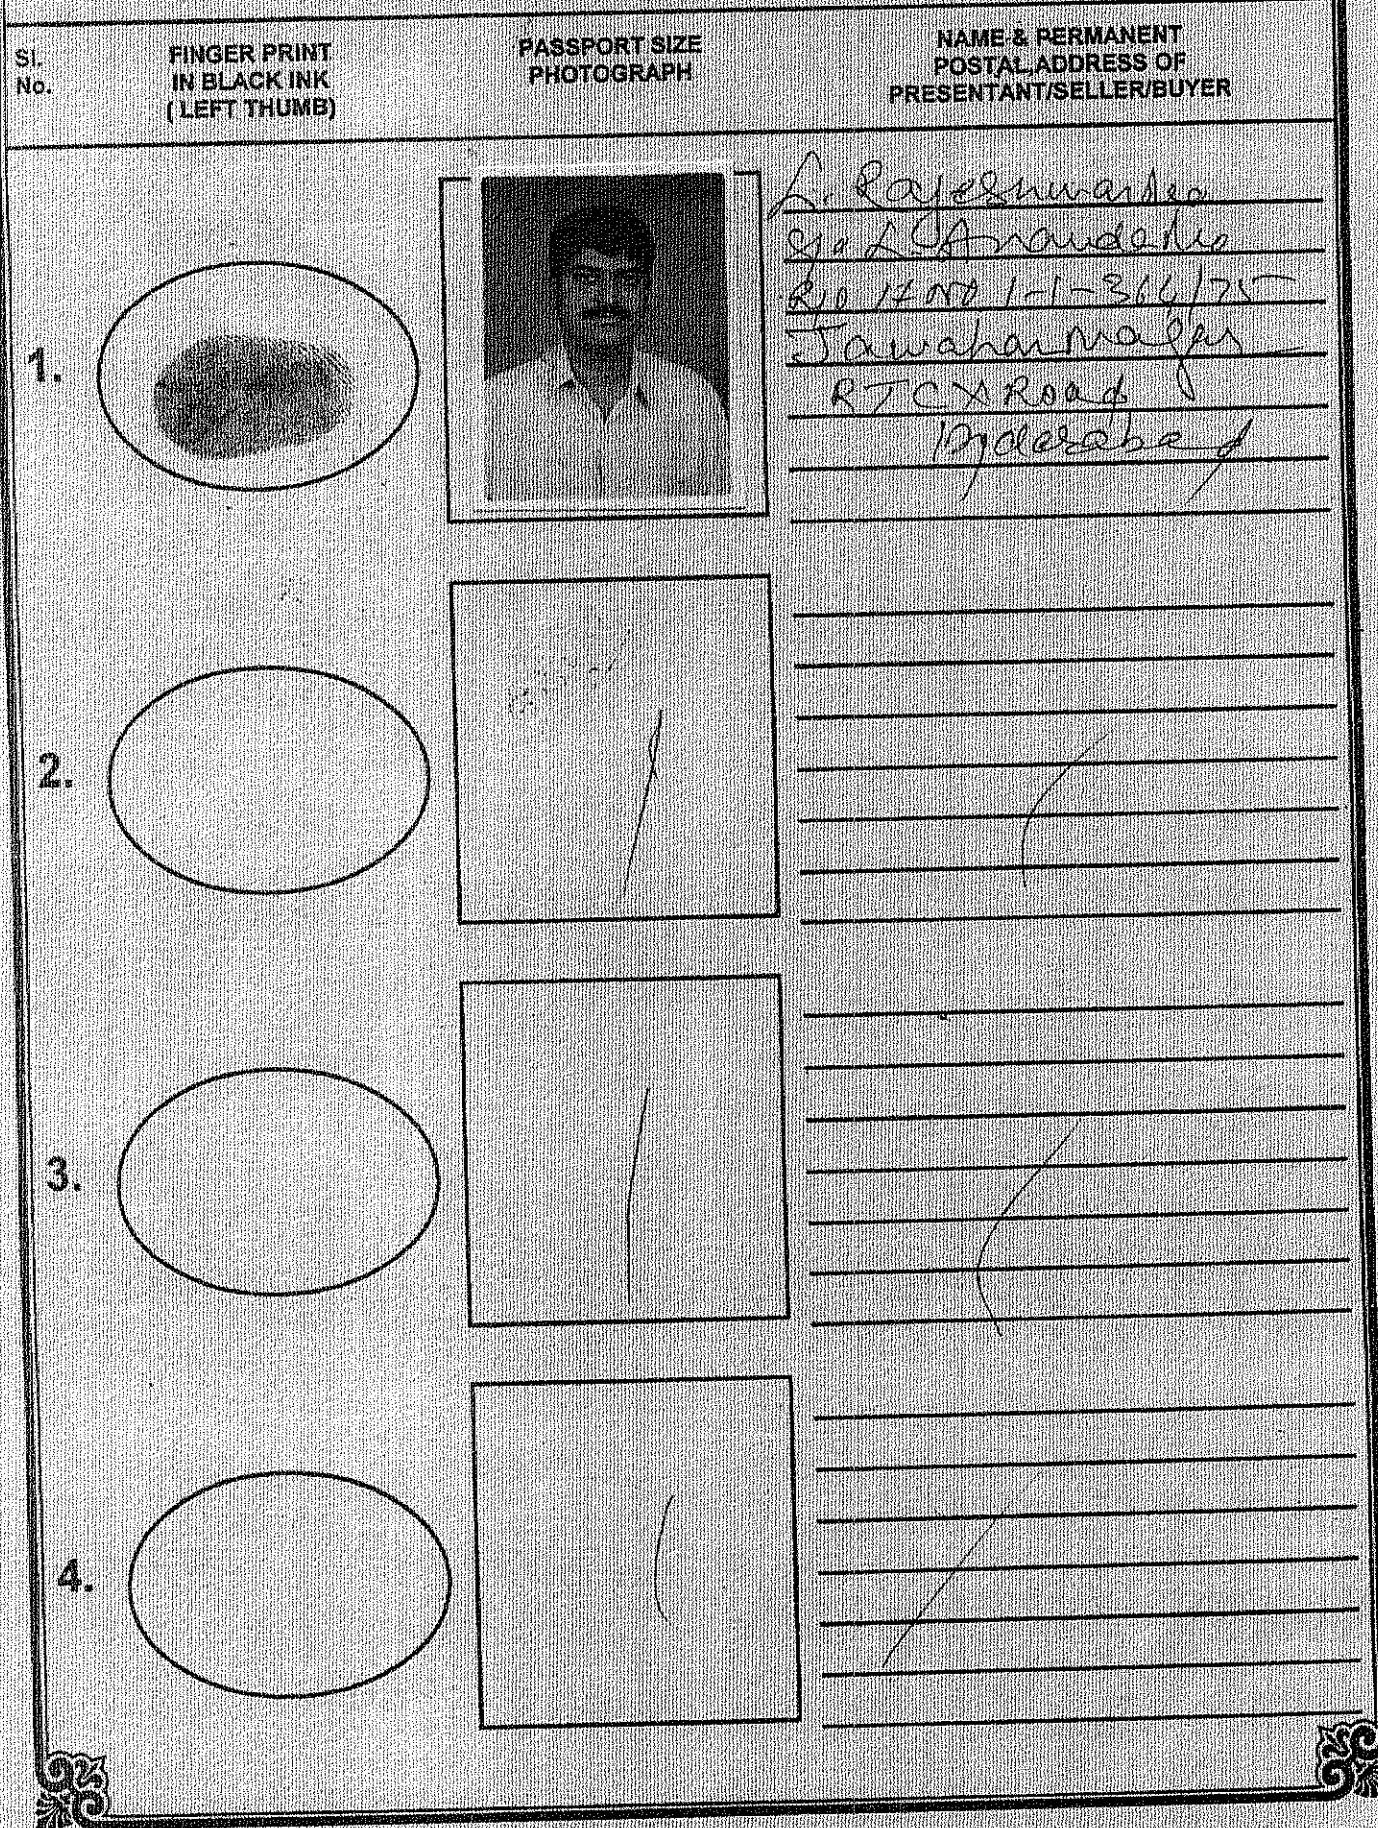 Sl.
No.
FINGER PRINT
IN BLACK INK
( LEFT THUMB)
PASSPORT SIZE
PHOTOGRAPH
NAME & PERMANENT
POSTAL ADDRESS OF
PRESENTANT/SELLER/BUYER
1.
L. Rajeshwar Rao
S/o L. Ananda Rao
R/o H NO 1-1-364/75
Jawahar Nagar
RTC X Road
Hyderabad
2.
3.
4.